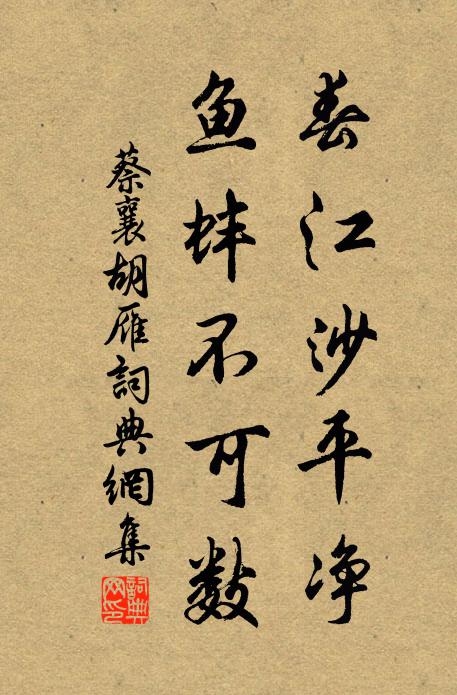 春江沙平净
鱼蚌不可数
蔡襄胡雁詞典網集
詞典
网印